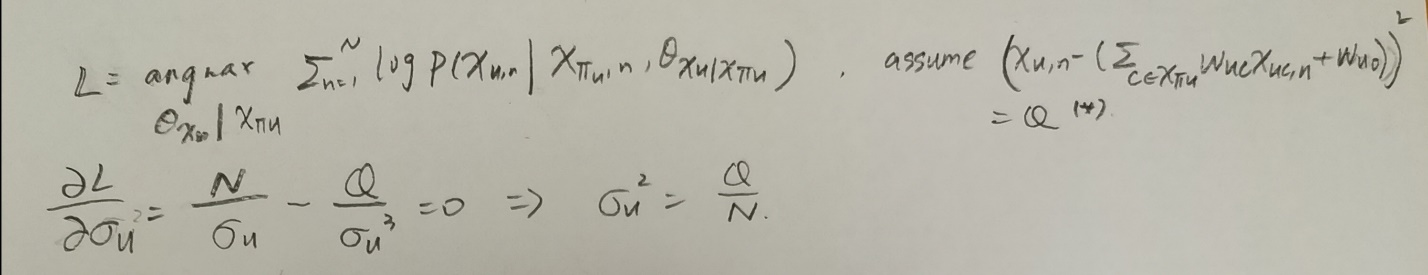 L = angmax Σ_{n=1}^{N} log p(x_{u,n} | x_{πu,n}, θ_{xu|xπu}) . assume (x_{u,n} - (Σ_{c∈xπu} w_{uc} x_{uc,n} + w_{u0}))²
θ_{xu} | xπu = Q (*).
∂L/∂σ_u² = N/σ_u - Q/σ_u³ = 0 ⇒ σ_u² = Q/N.